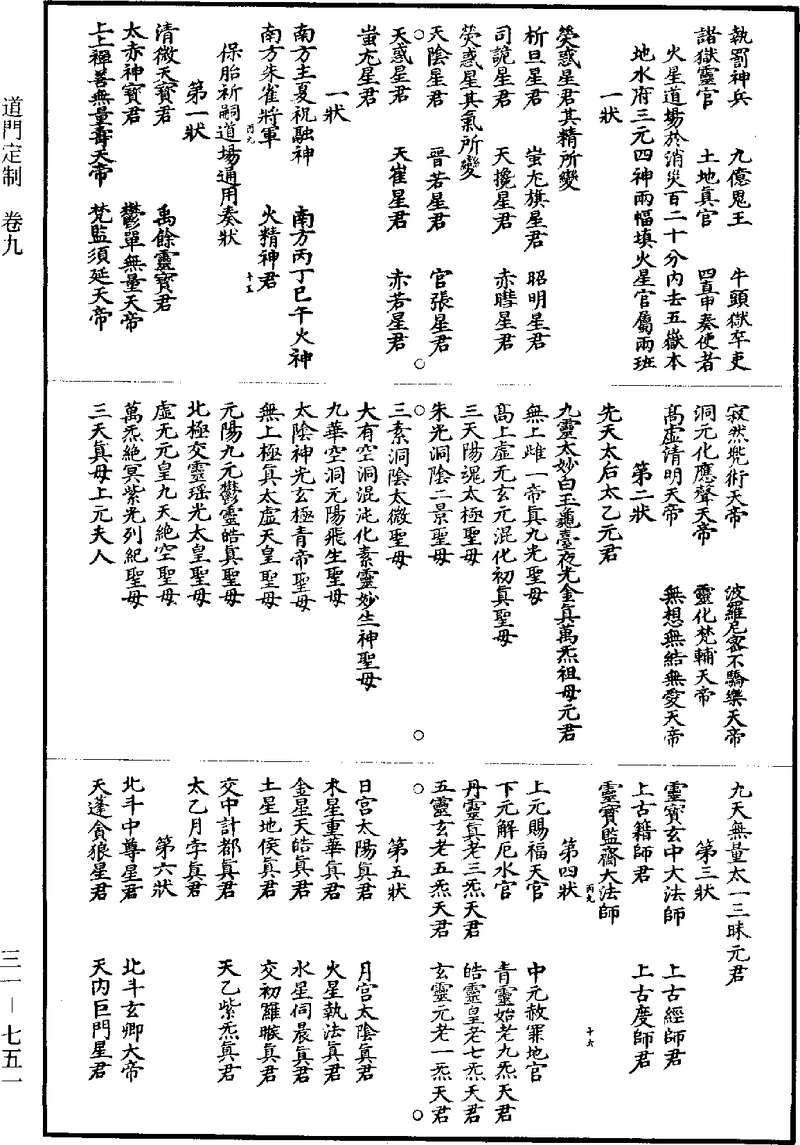 執罰神兵　九億鬼王　牛頭獄卒吏
諸獄靈官　土地真官　四直申奏使者
火星道場於消災百二十分內去五嶽本
地水府三元四神兩幅填火星官屬兩班
一狀
熒惑星君其精所變
析旦星君　蚩尤旗星君　昭明星君
司詭星君　天攙星君　赤彗星君
熒惑星其氣所變
天陰星君　晉若星君　官張星君
天惑星君　天崔星君　赤若星君
蚩尤星君
一狀
南方主夏祝融神　南方丙丁巳午火神
南方朱雀將軍　火精神君
丙九
保胎祈嗣道場通用奏狀
十五
第一狀
清微天寶君　禹餘靈寶君
太赤神寶君　鬱單無量天帝
上上禪善無量壽天帝　梵監須延天帝
寂然兜術天帝　波羅尼密不驕樂天帝
洞元化應聲天帝　靈化梵輔天帝
高虛清明天帝　無想無結無愛天帝
第二狀
先天太后太乙元君
九靈太妙白玉龜臺夜光金真萬炁祖母元君
無上雌一帝真九光聖母
高上虛无玄元混化初真聖母
三天陽魂太極聖母
朱光洞陰二景聖母
三素洞陰太微聖母
大有空洞混沌化素靈妙生神聖母
九華空洞元陽飛生聖母
太陰神光玄極青帝聖母
無上極真太虛天皇聖母
元陽九元鬱靈皓真聖母
北極交靈瑤光太皇聖母
虛无元皇九天絕空聖母
萬炁絕冥紫光列紀聖母
三天真母上元夫人
九天無量太一三昧元君
第三狀
靈寶玄中大法師　上古經師君
上古籍師君　上古度師君
靈寶監齋大法師
丙九
十六
第四狀
上元賜福天官　中元赦罪地官
下元解厄水官　青靈始老九炁天君
丹靈真老三炁天君　皓靈皇老七炁天君
五靈玄老五炁天君　玄靈元老一炁天君
第五狀
日宮太陽真君　月宮太陰真君
木星重華真君　火星執法真君
金星天皓真君　水星伺晨真君
土星地侯真君　交初羅睺真君
交中計都真君　天乙紫炁真君
太乙月孛真君
第六狀
北斗中尊星君　北斗玄卿大帝
天蓬貪狼星君　天內巨門星君
道門定制　卷九
三一－七五一